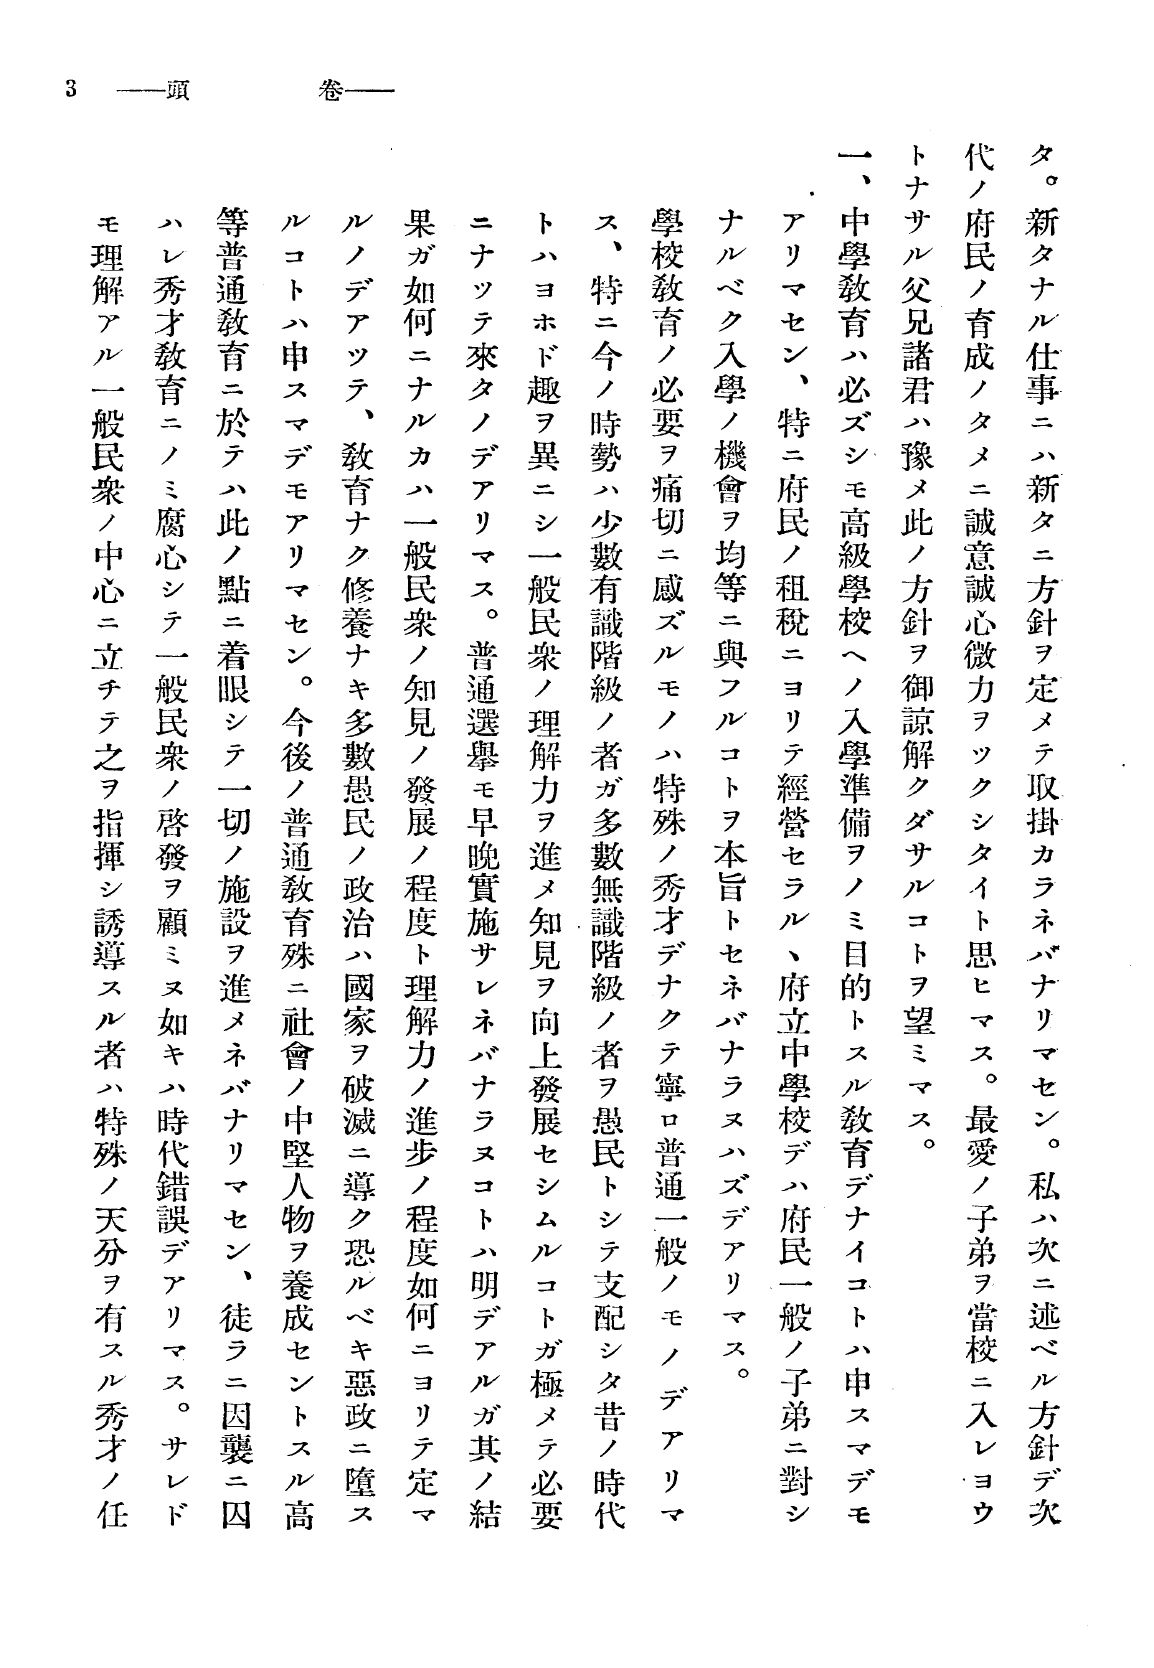 3 ――頭 卷――
タ。新タナル仕事ニハ新タニ方針ヲ定メテ取掛カラネバナリマセン。私ハ次ニ述ベル方針デ次
代ノ府民ノ育成ノタメニ誠意誠心微力ヲツクシタイト思ヒマス。最愛ノ子弟ヲ當校ニ入レヨウ
トナサル父兄諸君ハ豫メ此ノ方針ヲ御諒解クダサルコトヲ望ミマス。
一、中學敎育ハ必ズシモ高級學校ヘノ入學準備ヲノミ目的トスル敎育デナイコトハ申スマデモ
アリマセン、特ニ府民ノ租稅ニヨリテ經營セラルヽ府立中學校デハ府民一般ノ子弟ニ對シ
ナルベク入學ノ機會ヲ均等ニ與フルコトヲ本旨トセネバナラヌハズデアリマス。
學校敎育ノ必要ヲ痛切ニ感ズルモノハ特殊ノ秀才デナクテ寧ロ普通一般ノモノデアリマ
ス、特ニ今ノ時勢ハ少數有識階級ノ者ガ多數無識階級ノ者ヲ愚民トシテ支配シタ昔ノ時代
トハヨホド趣ヲ異ニシ一般民衆ノ理解力ヲ進メ知見ヲ向上發展セシムルコトガ極メテ必要
ニナッテ來タノデアリマス。普通選擧モ早晚實施サレネバナラヌコトハ明デアルガ其ノ結
果ガ如何ニナルカハ一般民衆ノ知見ノ發展ノ程度ト理解力ノ進步ノ程度如何ニヨリテ定マ
ルノデアッテ、敎育ナク修養ナキ多數愚民ノ政治ハ國家ヲ破滅ニ導ク恐ルベキ惡政ニ墮ス
ルコトハ申スマデモアリマセン。今後ノ普通敎育殊ニ社會ノ中堅人物ヲ養成セントスル高
等普通敎育ニ於テハ此ノ點ニ着眼シテ一切ノ施設ヲ進メネバナリマセン、徒ラニ因襲ニ囚
ハレ秀才敎育ニノミ腐心シテ一般民衆ノ啓發ヲ顧ミヌ如キハ時代錯誤デアリマス。サレド
モ理解アル一般民衆ノ中心ニ立チテ之ヲ指揮シ誘導スル者ハ特殊ノ天分ヲ有スル秀才ノ任